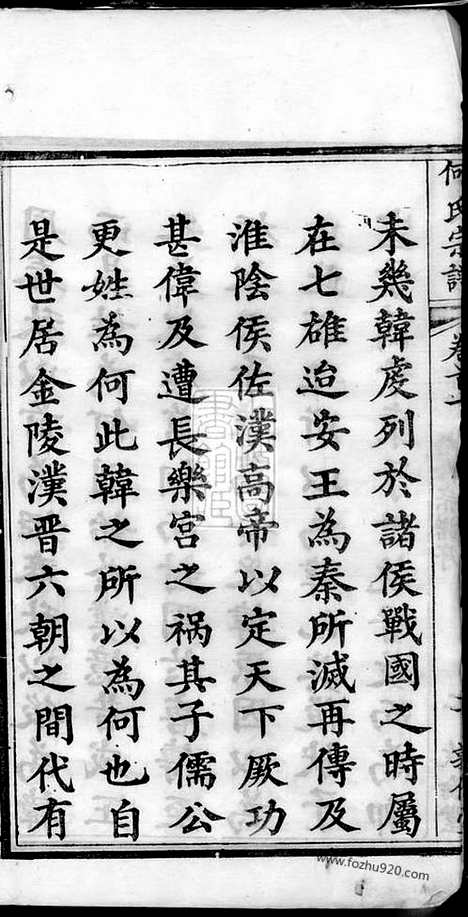 何氏宗譜
卷首
未幾韓虔列於諸侯戰國之時屬
在七雄迨安王為秦所滅再傳及
淮陰侯佐漢高帝以定天下厥功
甚偉及遭長樂宮之禍其子儒公
更姓為何此韓之所以為何也自
是世居金陵漢晋六朝之間代有
www.fozhu920.com